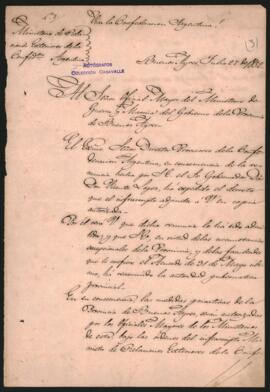 Viva la Confederacion Argentina!
Ministerio de Rela-
ciones Exteriores de la
Confed.on Argentina
AUTÓGRAFOS
COLECCIÓN CASAVALLE
(3)
Buenos Ayres, Julio 2
Al Señor Oficial Mayor del Ministerio de
Guerra y Marina del Gobierno de la Provincia
de Buenos Ayres.
El Exmo Señor Director Provisorio de la Confe-
deracion Argentina, en consecuencia de la re-
nuncia hecha por S. E. el Sr Gobernador Dr
D. Vicente Lopez, ha expedido el decreto
que el infrascripto adjunta á V en copia
autorizada.
Por él verá V que dicha renuncia le ha sido admi-
tida, y que S.E., en virtud de las circunstancias
excepcionales de la Provincia, y de las facultades
que le confiere el Acuerdo de 31 de Mayo últi-
mo, ha reasumido la autoridad gubernativa
provincial.
En su consecuencia, las medidas gubernativas de la
Provincia de Buenos Ayres, serán autorizadas
por los Oficiales Mayores de los Ministerios
de esta, bajo las órdenes del infrascripto Mi-
nistro de Relaciones Exteriores de la Confe-